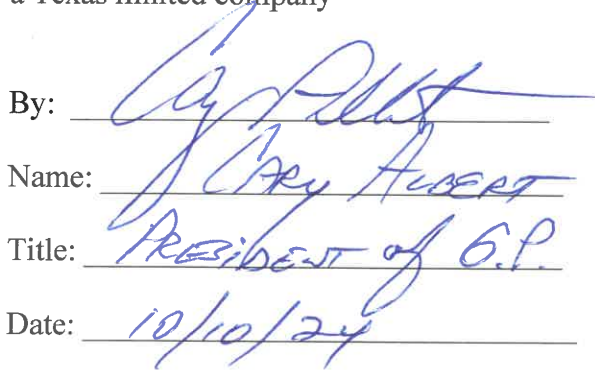 a Texas limited company
By: Cary Albert
Name: CARY ALBERT
Title: PRESIDENT of G.P.
Date: 10/10/24